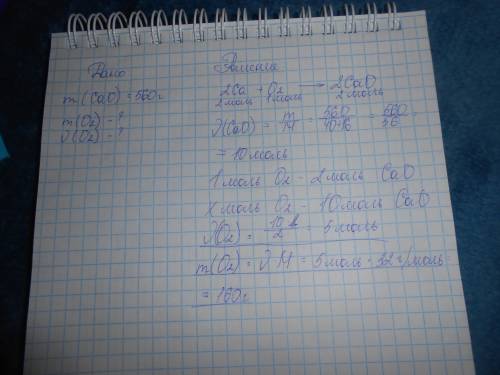 Дано
m(CaO) = 560г
m(O₂) - ?
ν(O₂) - ?
Решение
2Ca + O₂ → 2CaO
2моль 1моль 2моль
ν(CaO) = m/M = 560/40+16 = 560/56 =
= 10 моль
1 моль O₂ - 2 моль CaO
x моль O₂ - 10 моль CaO
ν(O₂) = 10·1/2 = 5 моль
m(O₂) = ν·M = 5 моль · 32 г/моль =
= 160г